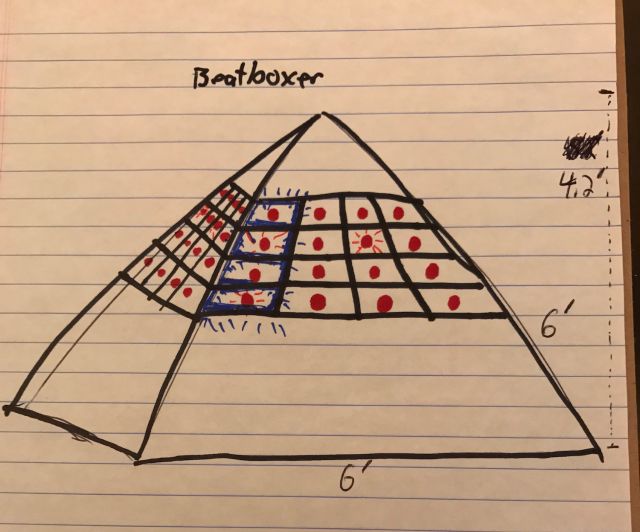 Beatboxer
4.2'
6'
6'